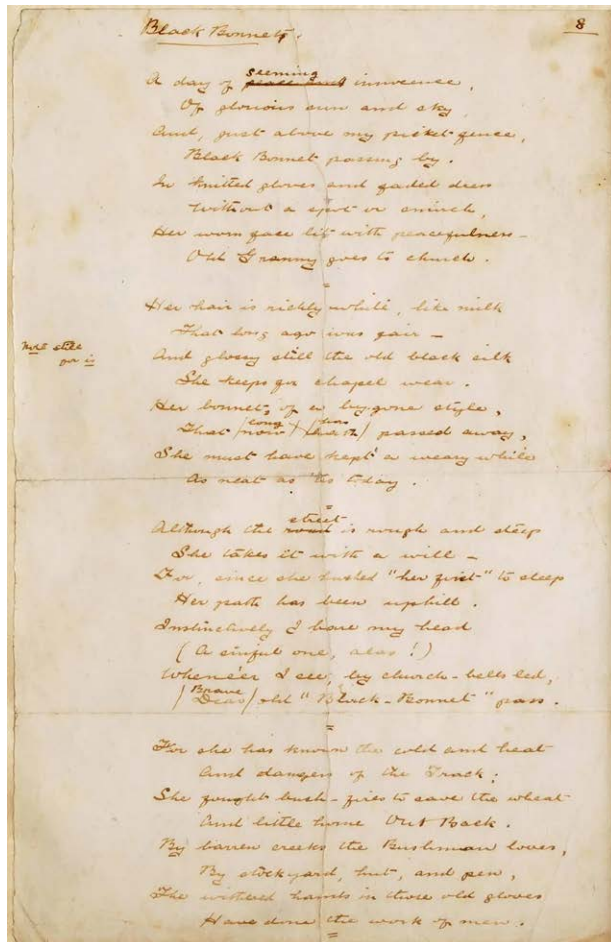 Black Bonnet.
8
A day of peace and seeming innocence,
Of glorious sun and sky
And, just above my picket fence,
Black Bonnet passing by.
In knitted gloves and faded dress
Without a spot or smirch,
Her worn face lit with peacefulness –
Old Granny goes to church.
Her hair is richly white, like milk
That long ago was fair –
And glossy still the old black silk
She keeps for chapel wear.
Her bonnet, of a bygone style,
long has
That / now / / hath / passed away,
She must have kept a weary while
As neat as 'tis today.
street
Although the road is rough and steep
She takes it with a will –
For, since she hushed "her first" to sleep
Her path has been uphill.
Instinctively I bare my head
( A sinful one, alas ! )
Whene'er I see, by church-bells led,
Brave
/ Dear / old "Black-Bonnet" pass.
For she has known the cold and heat
And dangers of the Track;
She fought bush-fires to save the wheat
And little home Out Back.
By barren creeks the Bushman loves,
By stockyard, hut, and pen,
The withered hands in those old gloves
Have done the work of men.